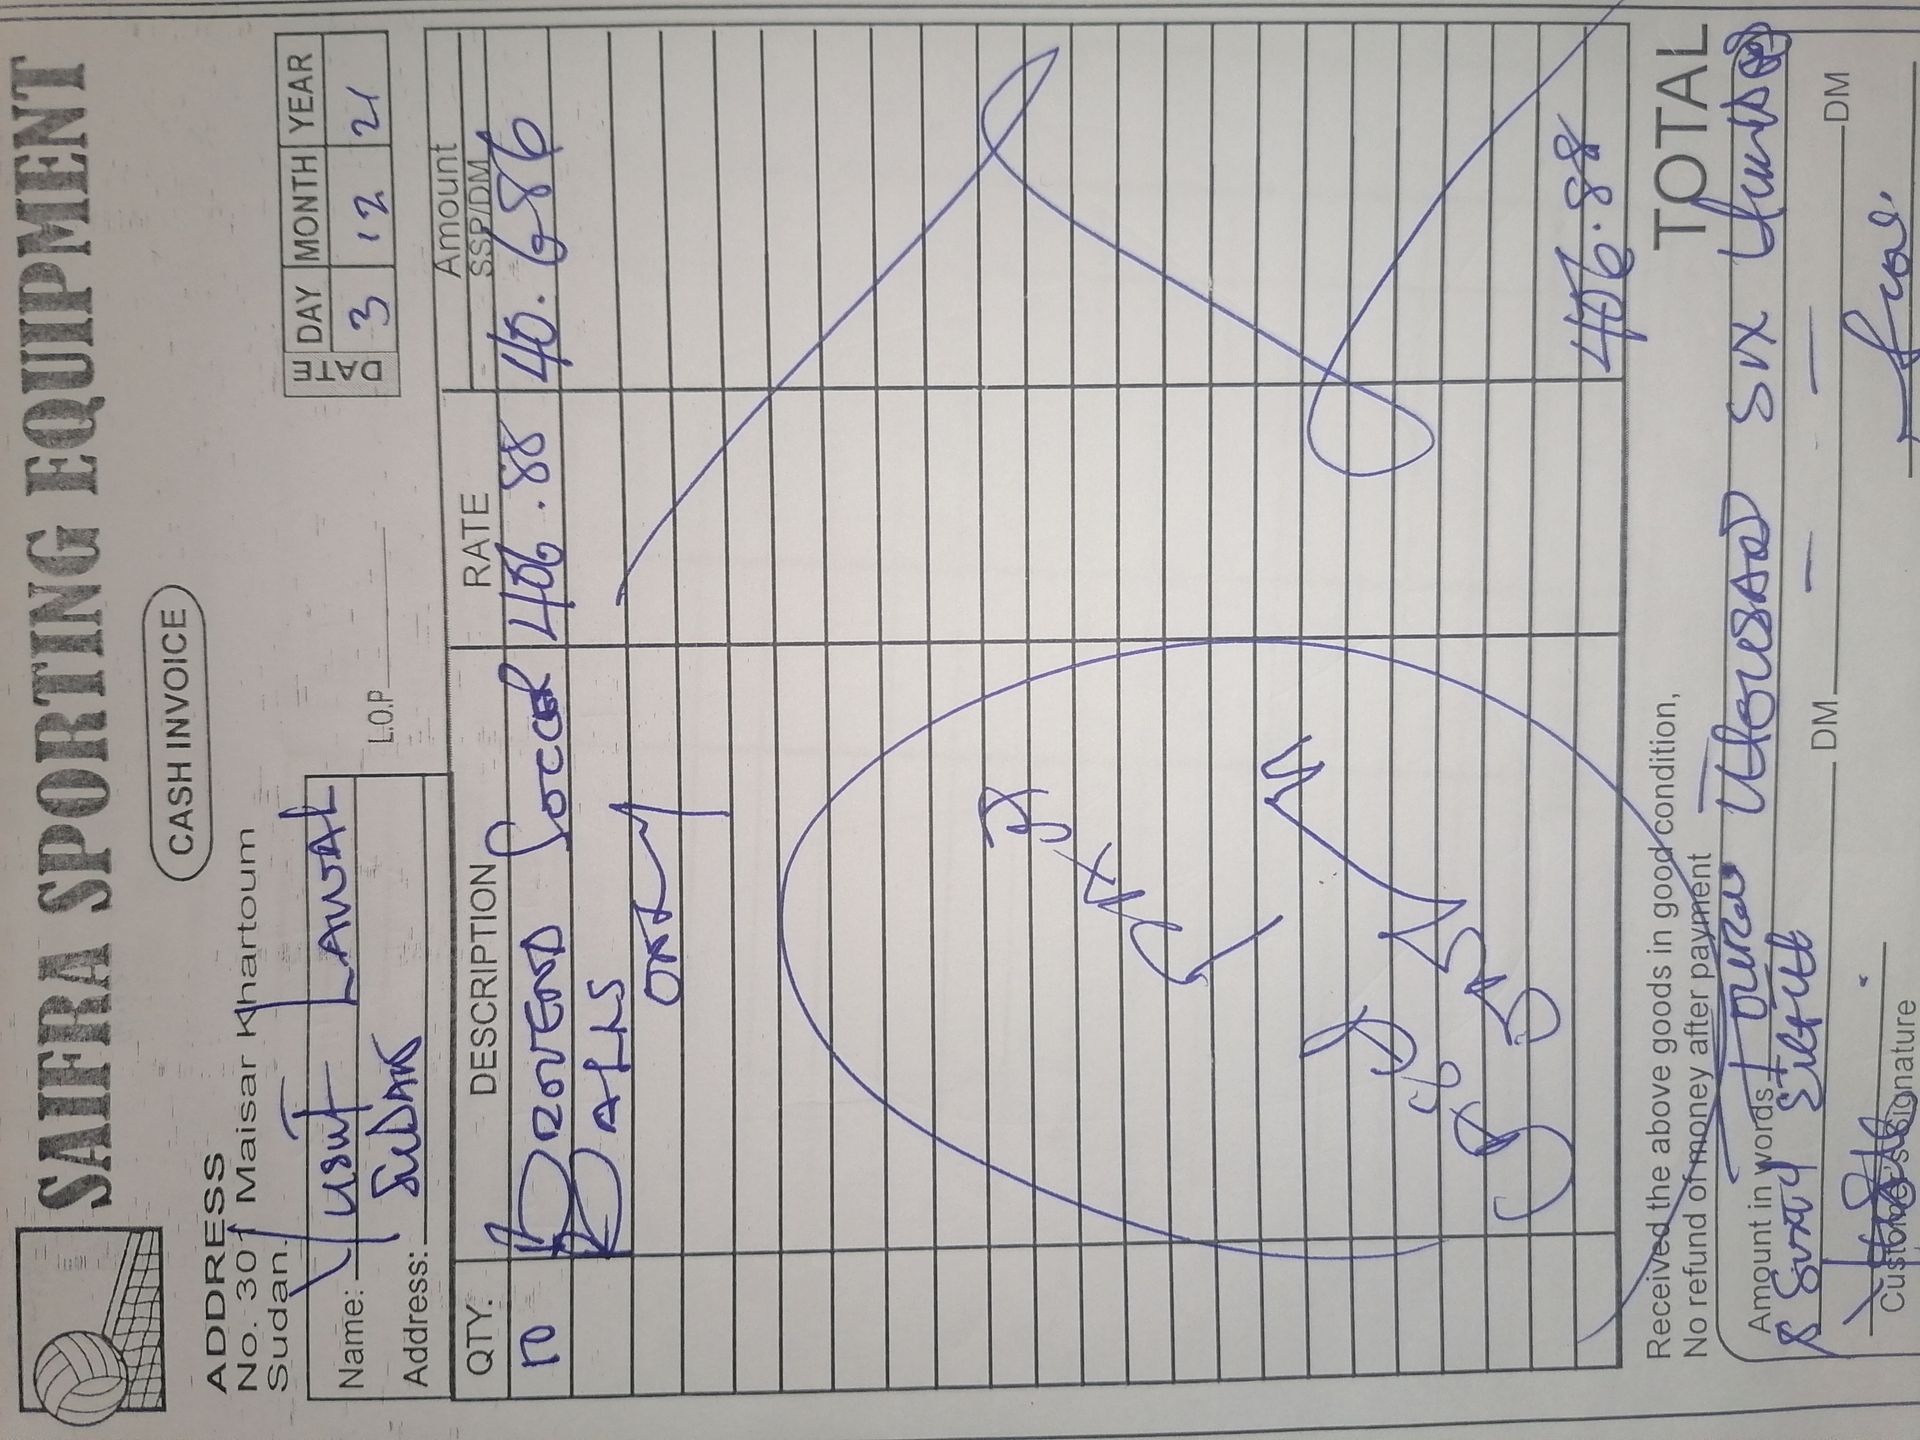 SAIFRA SPORTING EQUIPMENT
CASH INVOICE
ADDRESS
No. 301 Maisar Khartoum
Sudan.
DATE
DAY MONTH YEAR
3 12 21
Name: Yusuf Lawal
Address: Sudan
L.O.P
QTY. DESCRIPTION RATE Amount
SSP/DM
10 Provend Soccer 406.88 40.686
Balls
only
406.88
Received the above goods in good condition,
No refund of money after payment
TOTAL
Amount in words Four Thousand Six Hundred
& Sixty Eight
DM DM
Customer's Signature